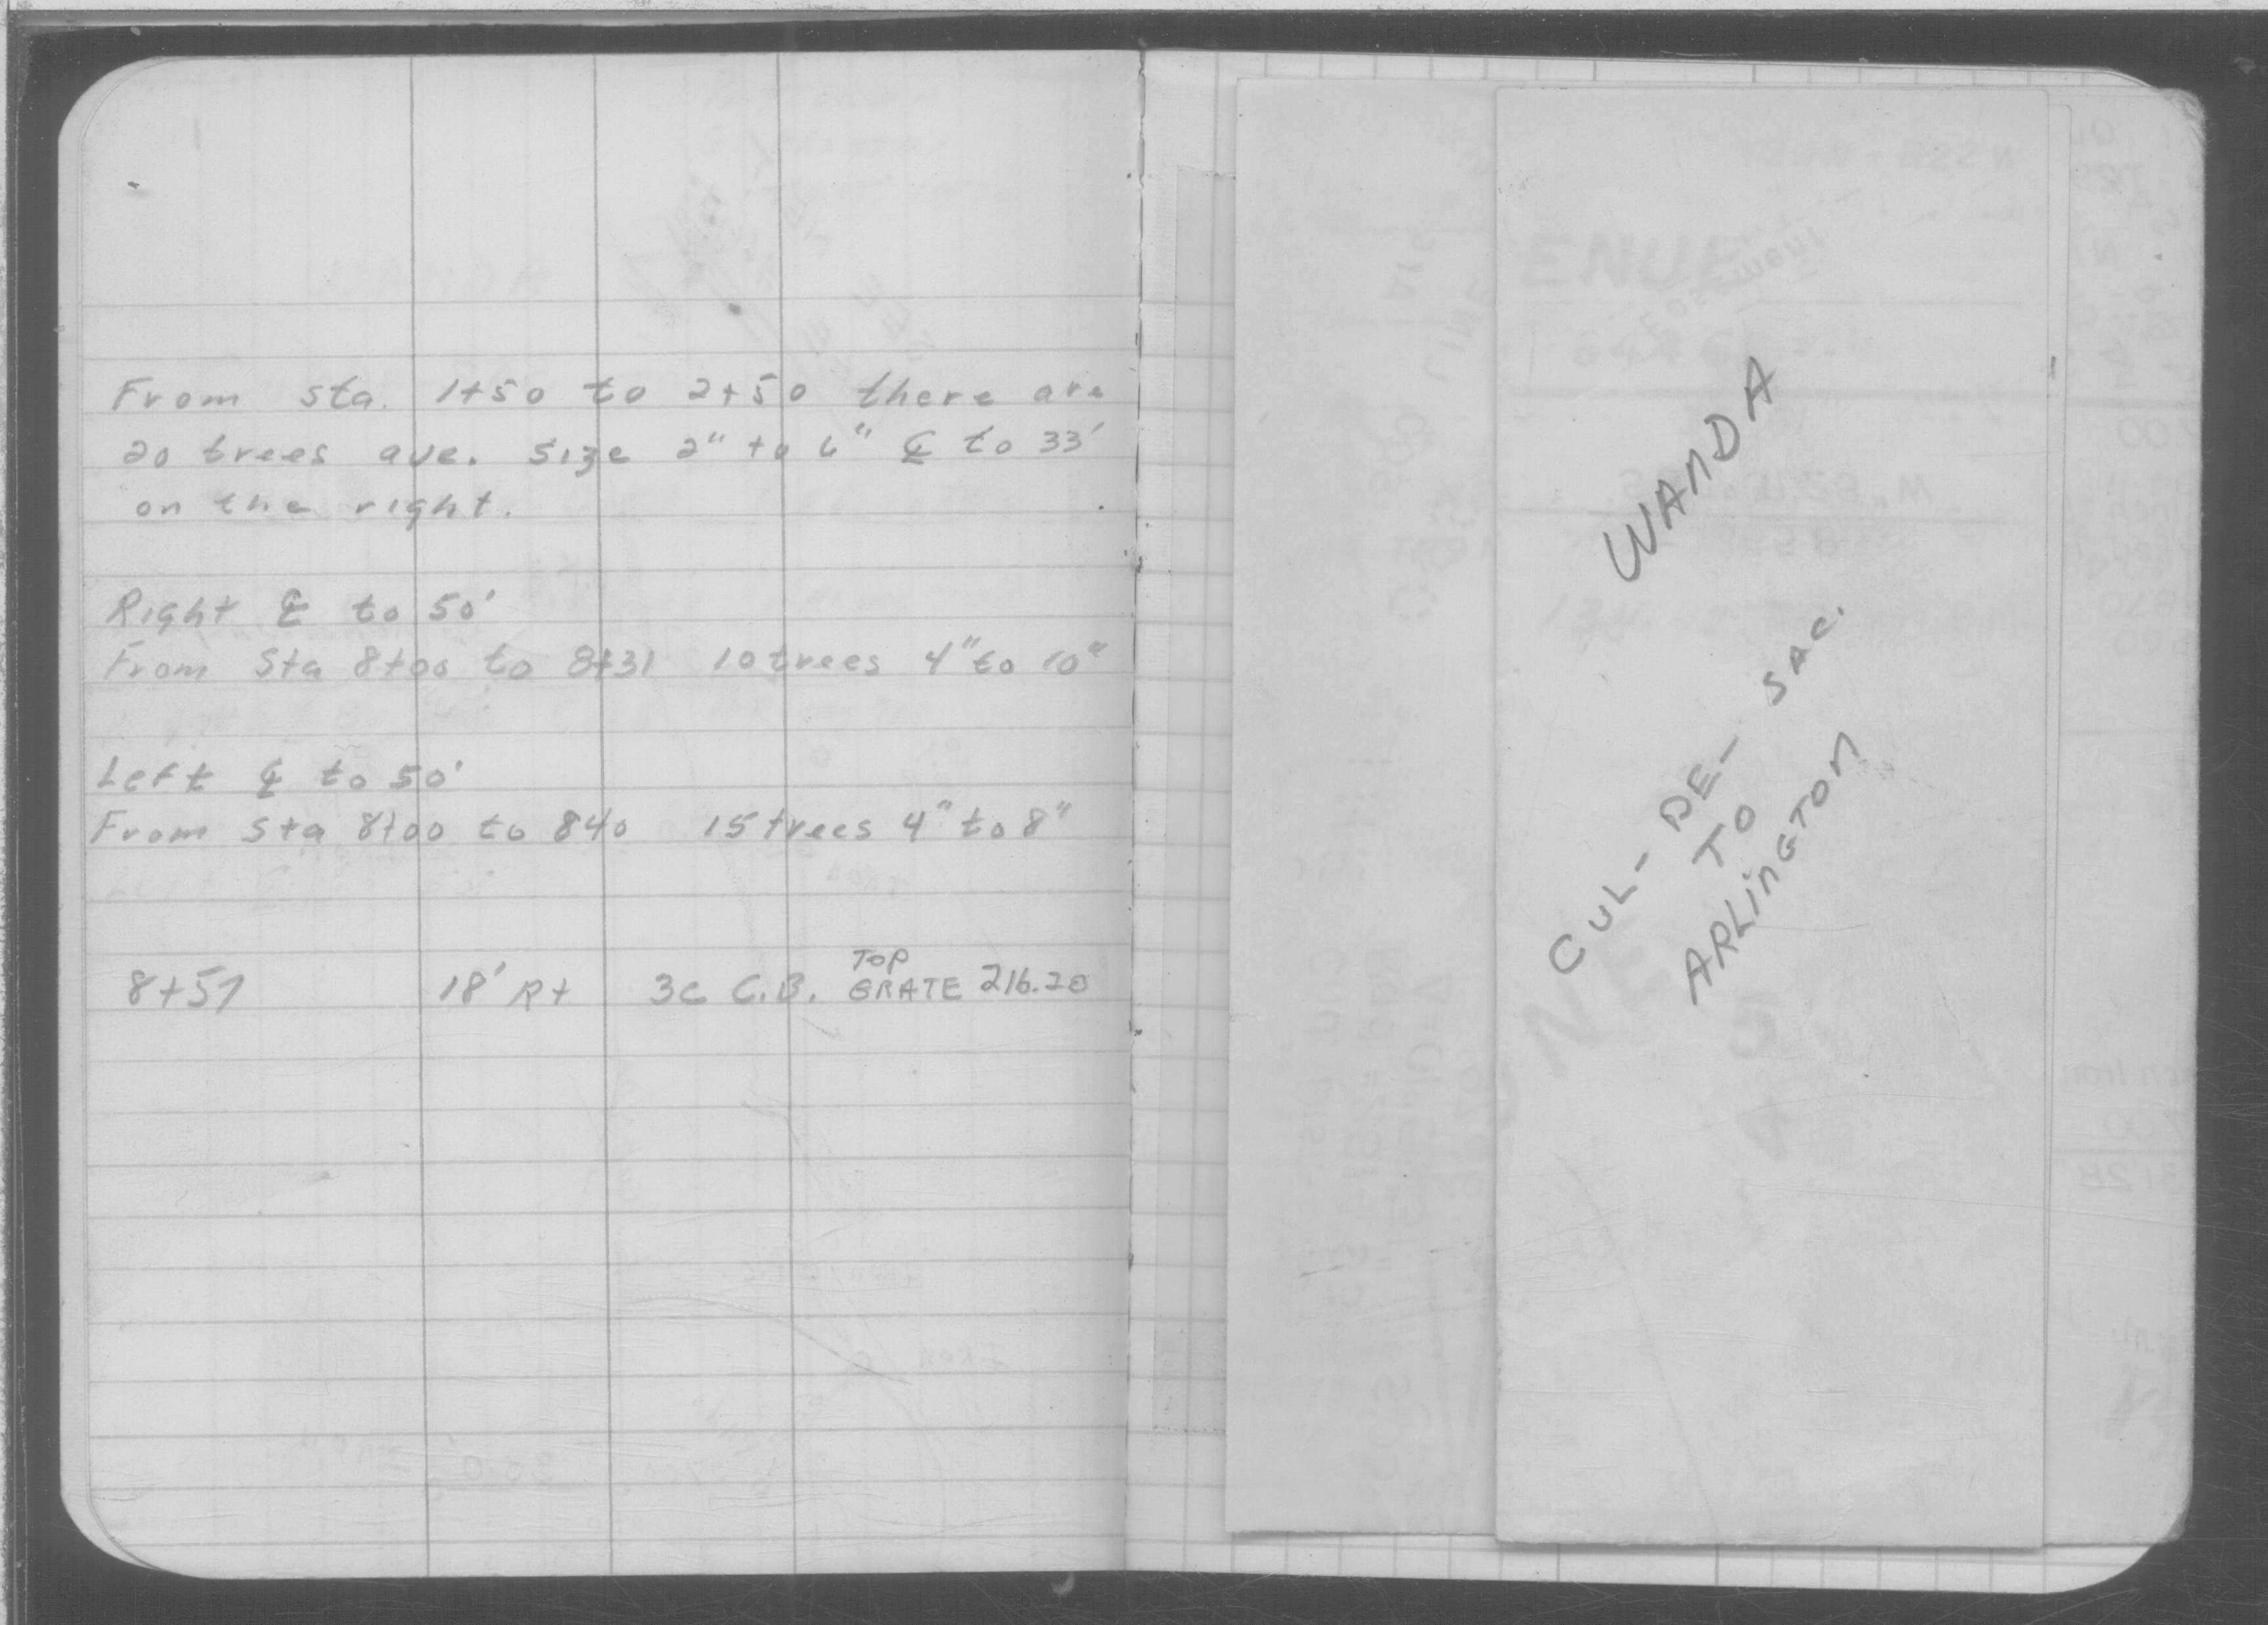 From Sta. 1+50 to 2+50 there are
20 trees ave. size 2" to 6" ℄ to 33'
on the right.
Right ℄ to 50'
From Sta 8+00 to 8+31 10 trees 4" to 10"
Left ℄ to 50'
From Sta 8+00 to 840 15 trees 4" to 8"
8+57 18' Rt C.B. TOP
GRATE 216.20
WANDA
CUL-DE-SAC.
TO
ARLINGTON